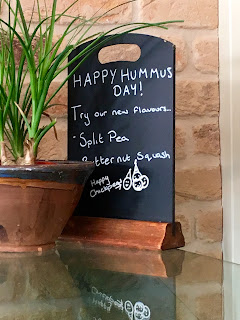 HAPPY HUMMUS
DAY!
Try our new flavours...
- Split Pea
Butternut Squash
Happy
Chickpeas